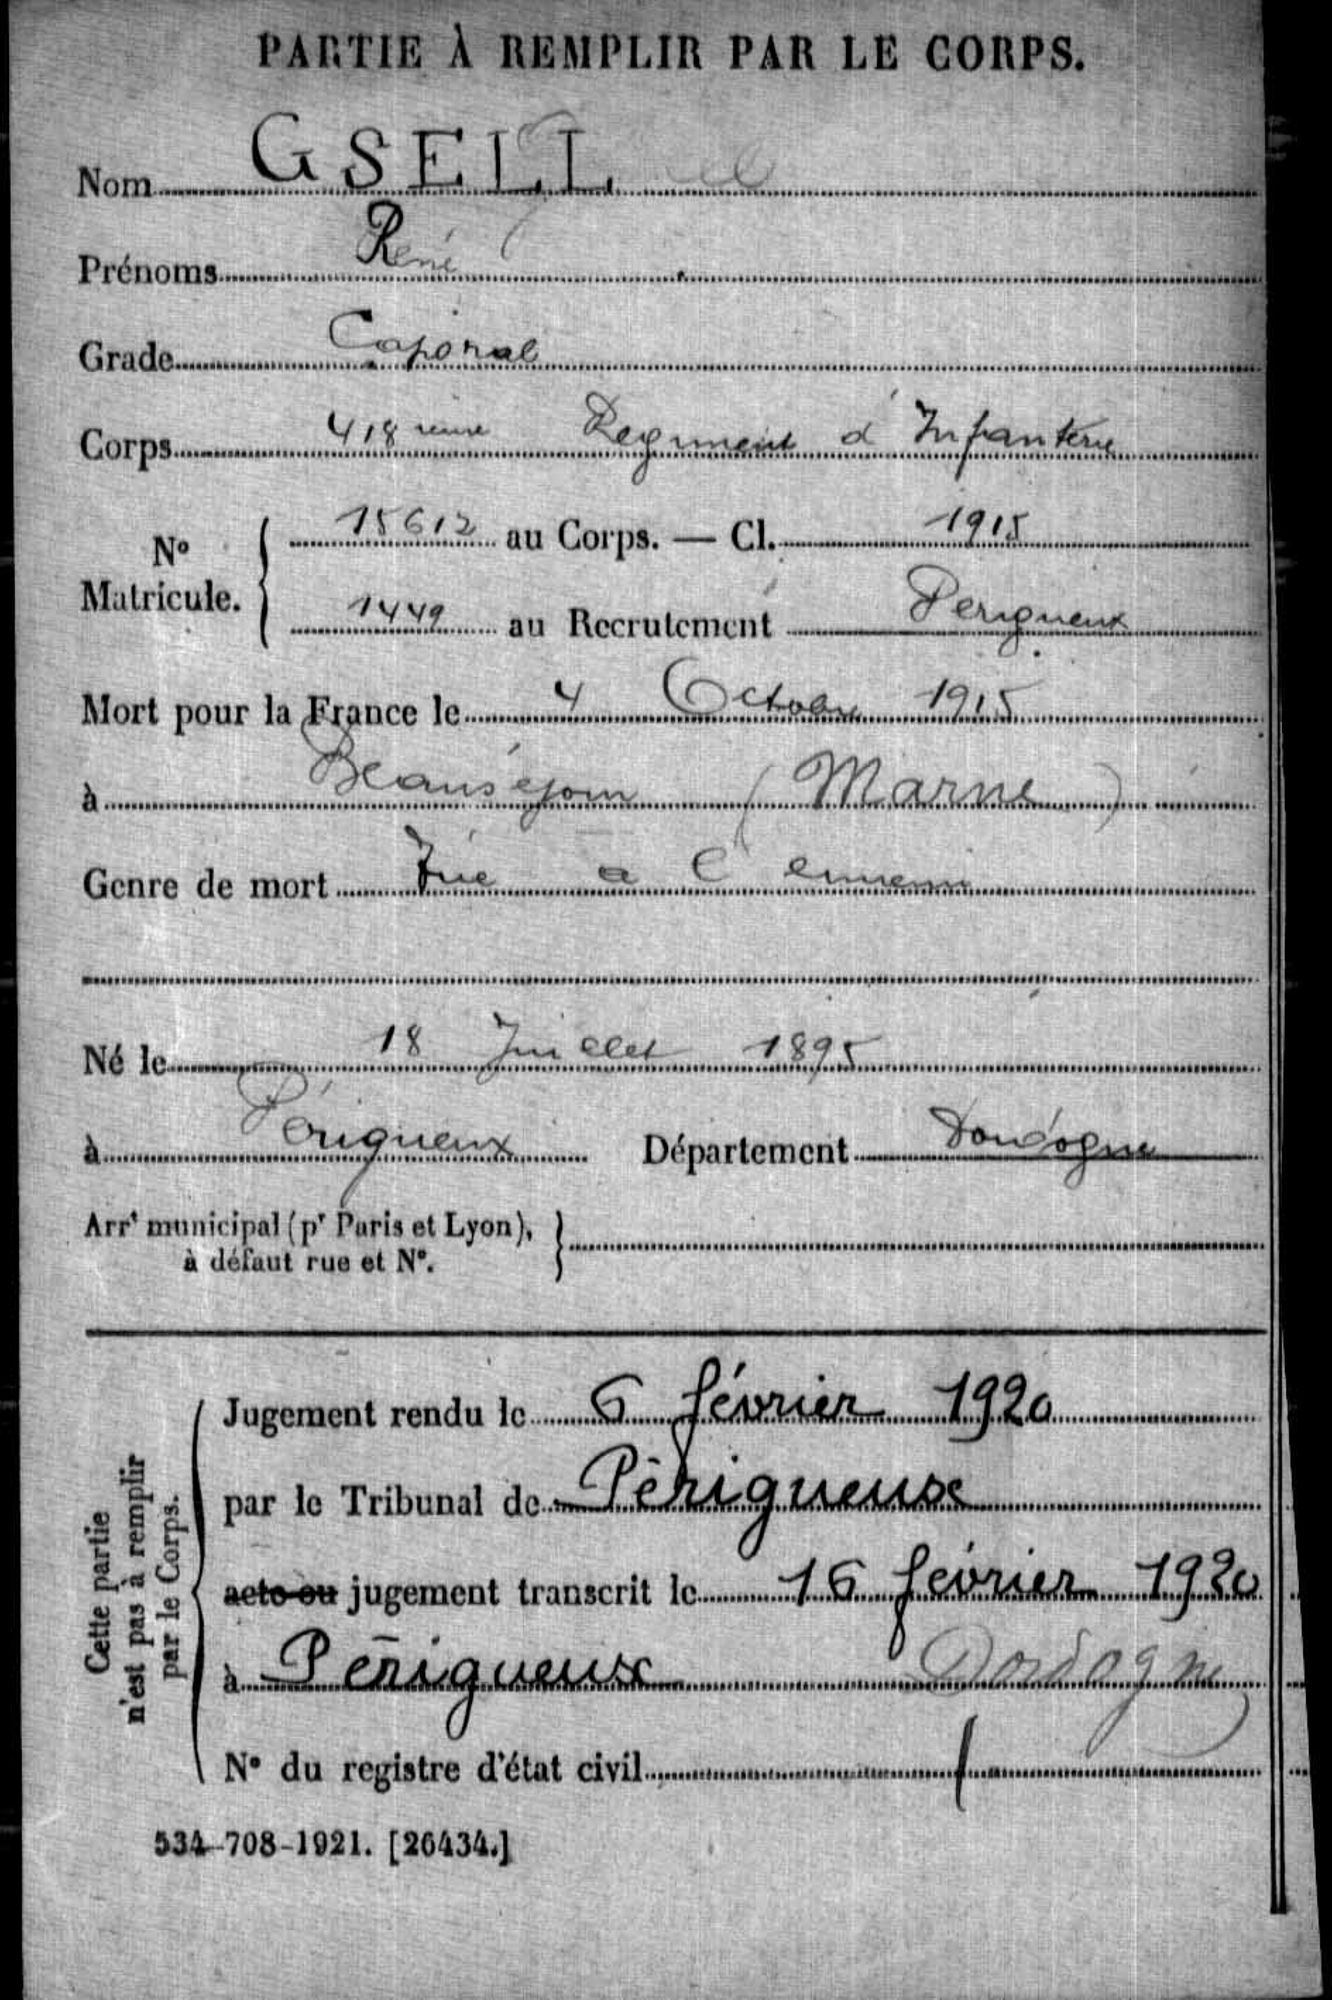 PARTIE À REMPLIR PAR LE CORPS.
Nom GSELL
Prénoms René
Grade Caporal
Corps 418ème Regiment d'Infanterie
N° Matricule. 15612 au Corps. — Cl. 1915
1449 au Recrutement Perigueux
Mort pour la France le 4 Octobre 1915
à Beauséjour (Marne)
Genre de mort Tué a l'ennemi
Né le 18 Juillet 1895
à Périgueux Département Dordogne
Arrt municipal (pr Paris et Lyon),
à défaut rue et N°.
Cette partie
n'est pas à remplir
par le Corps.
Jugement rendu le 6 février 1920
par le Tribunal de Périgueux
acte ou jugement transcrit le 16 février 1920
à Périgueux Dordogne
N° du registre d'état civil
534-708-1921. [26434.]